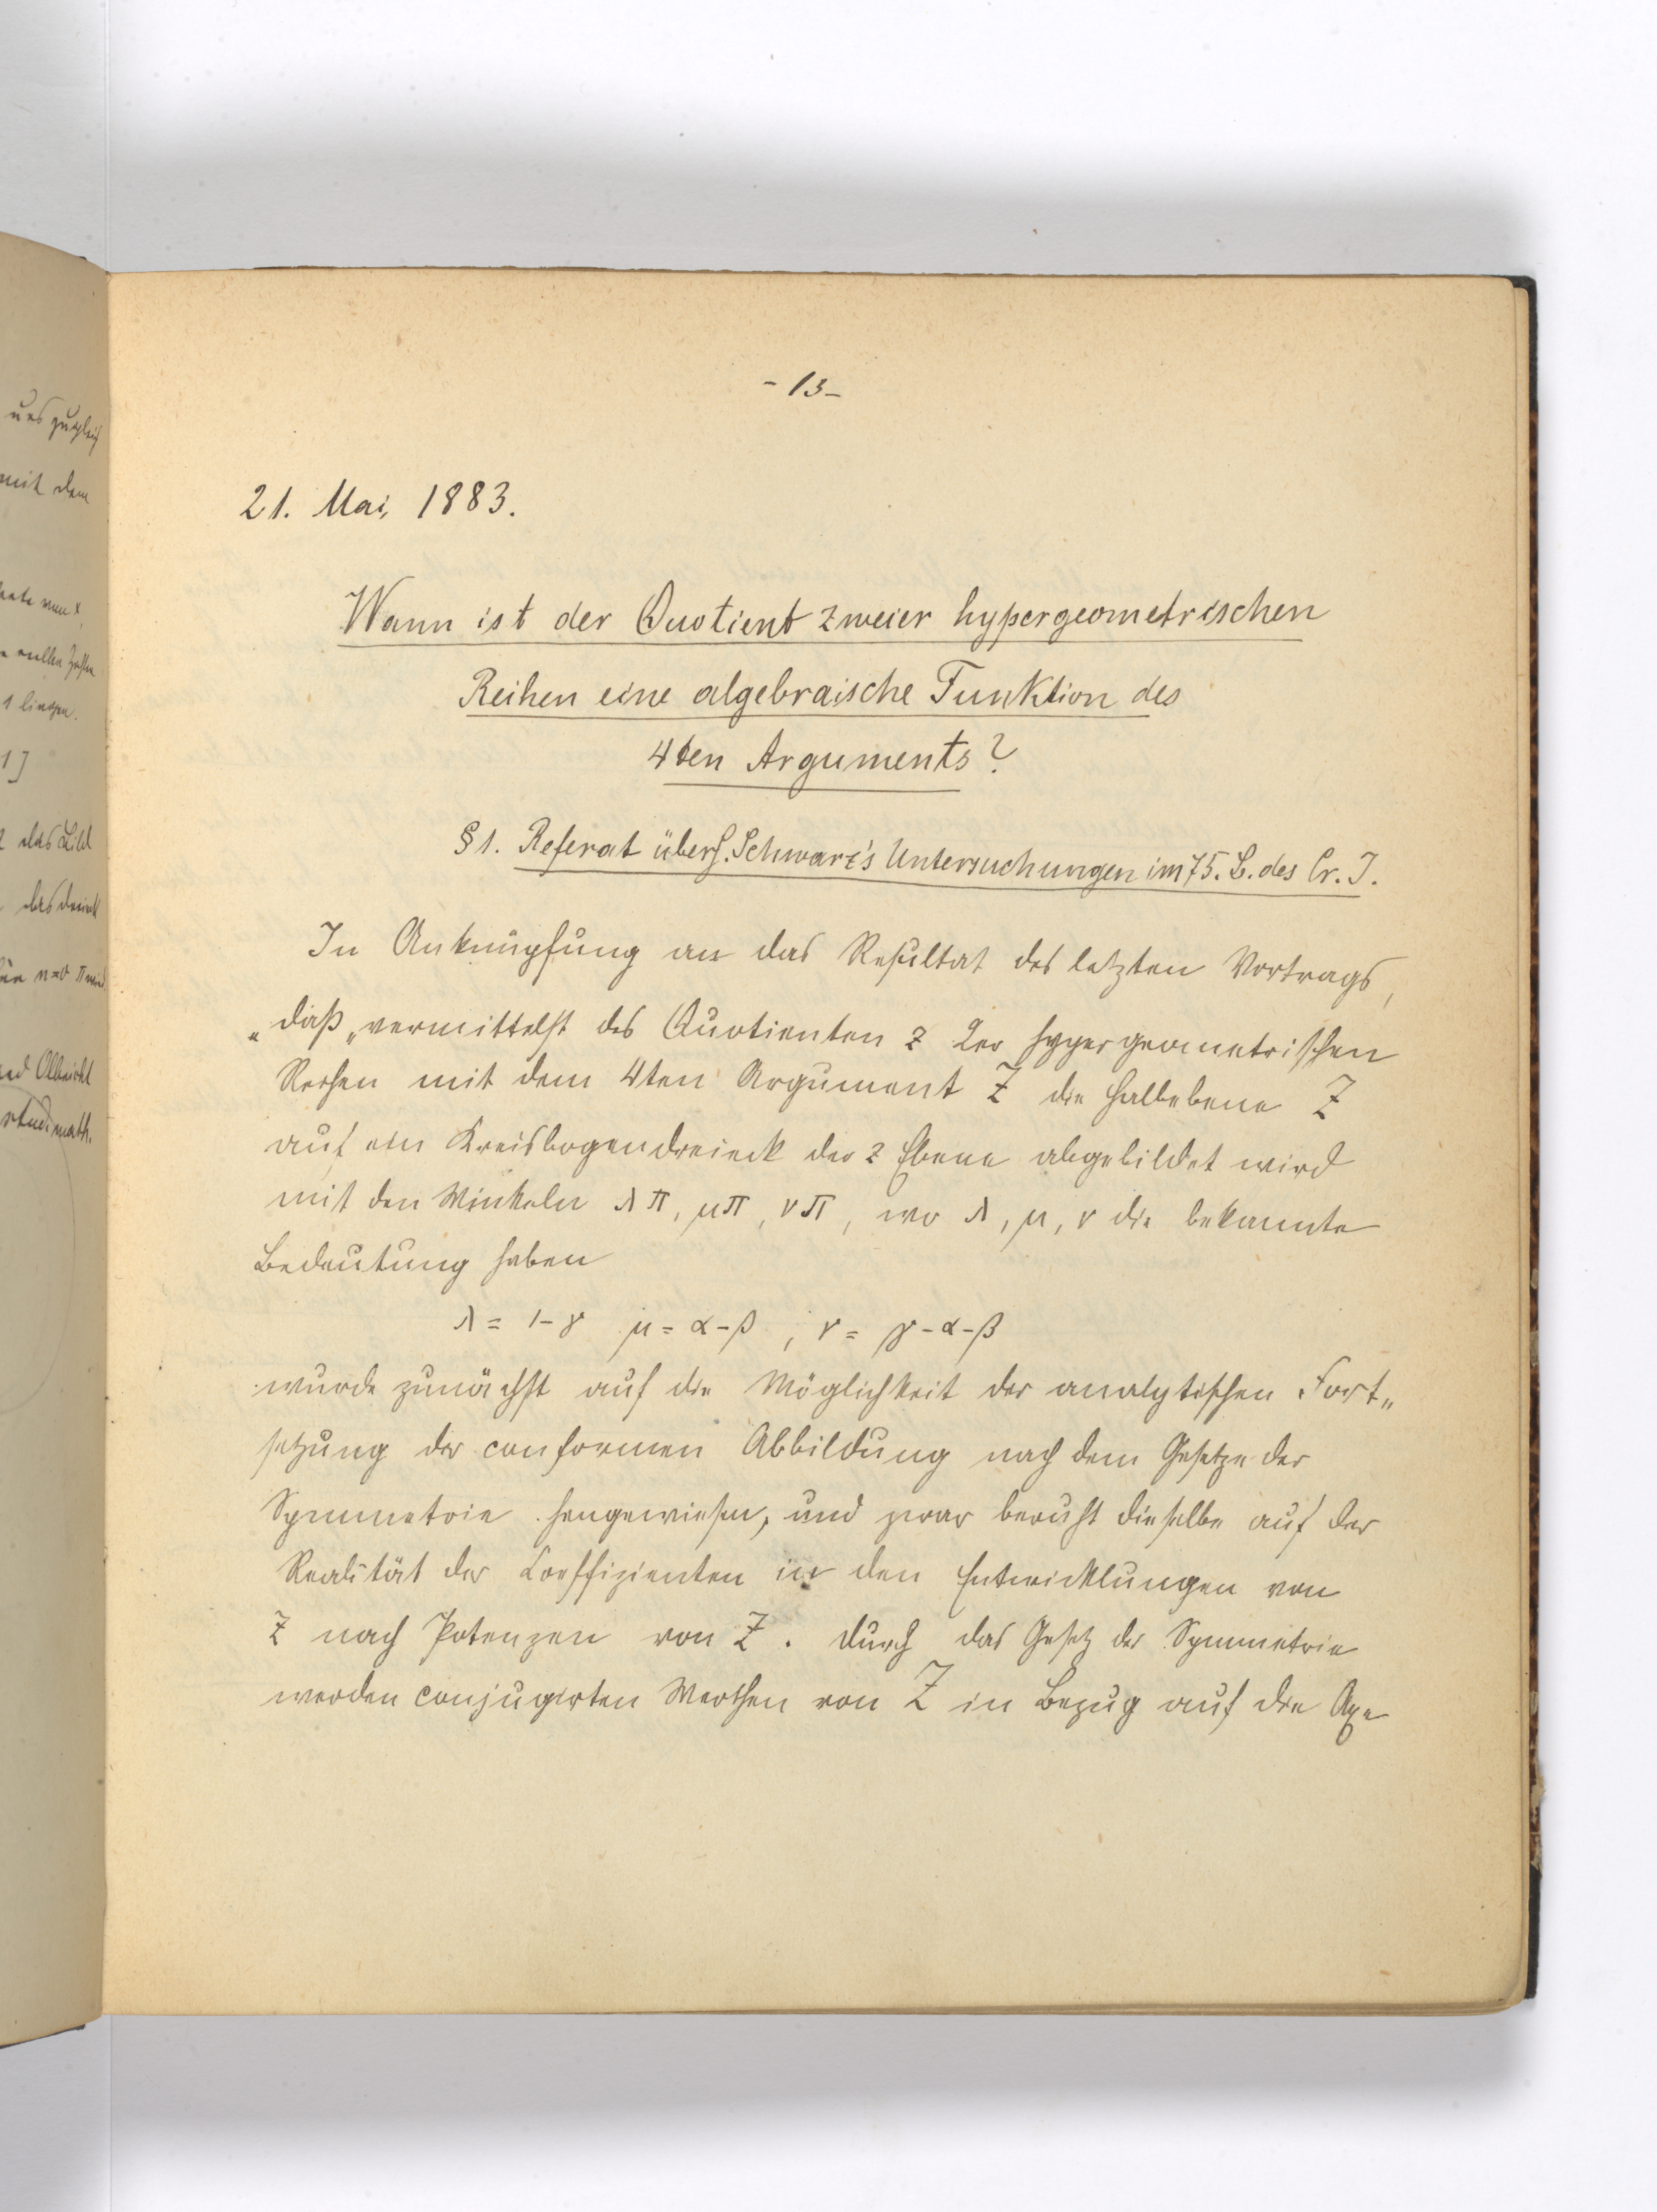 uns zugleich
mit dem
reellen Zahlen
1 liegen.
1]
das Bild
das Dreieck
für n=0 π wird
Olbricht
stud. math.
- 13 -
21. Mai, 1883.
Wann ist der Quotient zweier hypergeometrischen
Reihen eine algebraische Funktion des
4ten Arguments?
§ 1. Referat über H. Schwarz's Untersuchungen im 75. B. des Cr. J.
In Anknüpfung an das Resultat des letzten Vortrags,
„daß „vermittelst des Quotienten z 2er hypergeometrischen
Reihen mit dem 4ten Argument Z die Halbebene Z
auf ein Kreisbogendreieck der z Ebene abgebildet wird
mit den Winkeln λπ, μπ, νπ, wo λ, μ, ν die bekannte
Bedeutung haben
λ = 1-γ μ = α-β , ν = γ-α-β
wurde zunächst auf die Möglichkeit der analytischen Fort„
setzung der conformen Abbildung nach dem Gesetze der
Symmetrie hingewiesen, und zwar beruht dieselbe auf der
Realität der Coeffizienten in den Entwicklungen von
z nach Potenzen von Z. Durch das Gesetz der Symmetrie
werden conjugirten Werthen von Z in Bezug auf die Axe